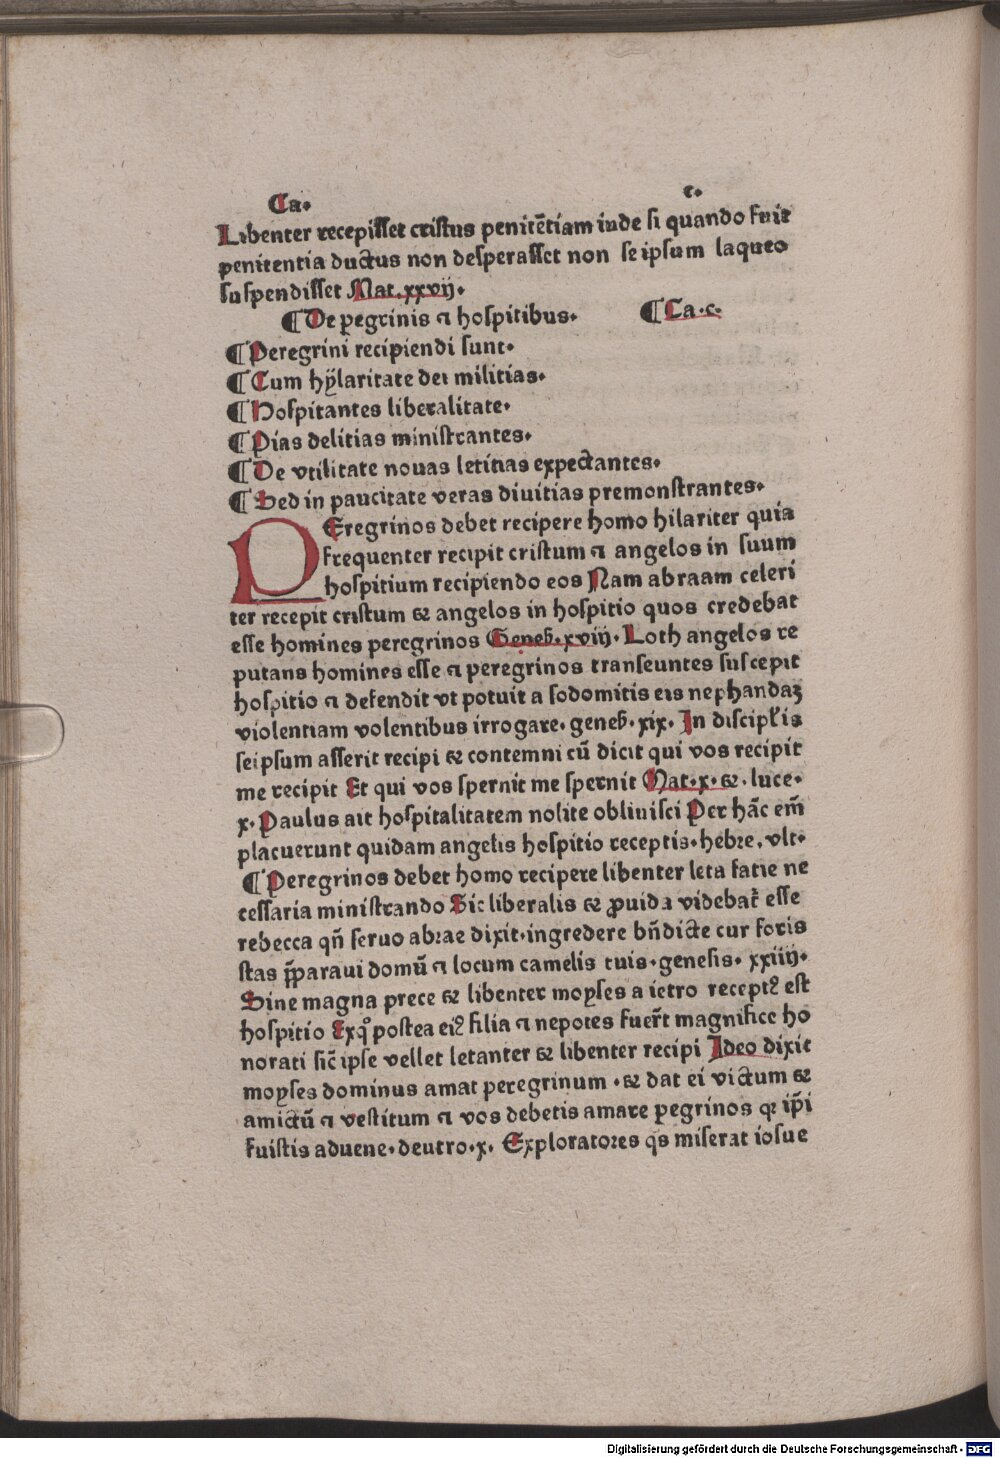 Ca. c.
Libenter recepisset cristus penitētiam iude si quando fuit
penitentia ductus non desperasset non se ipsum laqueo
suspendisset Mat. xxvij.
¶ De pegrinis ⁊ hospitibus. ¶ Ca. c.
¶ Peregrini recipiendi sunt.
¶ Cum hÿlaritate dei militias.
¶ Hospitantes liberalitate.
¶ Pias delitias ministrantes.
¶ De vtilitate nouas letitias expectantes.
¶ Sed in paucitate veras diuitias premonstrantes.
PEregrinos debet recipere homo hilariter quia
frequenter recipit cristum ⁊ angelos in suum
hospitium recipiendo eos Nam abraam celeri
ter recepit cristum & angelos in hospitio quos credebat
esse homines peregrinos Geneſ. xviij. Loth angelos re
putans homines esse ⁊ peregrinos transeuntes suscepit
hospitio ⁊ defendit vt potuit a sodomitis eis nephandaꝫ
violentiam volentibus irrogare. geneſ. xix. In discipl'is
seipsum asserit recipi & contemni cū dicit qui vos recipit
me recipit Et qui vos spernit me spernit Mat. x. &. luce.
x. Paulus ait hospitalitatem nolite obliuisci Per hāc em̄
placuerunt quidam angelis hospitio receptis. hebre. vlt.
¶ Peregrinos debet homo recipere libenter leta fatie ne
cessaria ministrando Sic liberalis & ꝓuida videbat̄ esse
rebecca qn̄ seruo abrae dixit. ingredere bn̄dicte cur foris
stas p̄paraui domū ⁊ locum camelis tuis. genesis. xxiiij.
Sine magna prece & libenter moyses a ietro receptꝰ est
hospitio Exqͦ postea eiꝰ filia ⁊ nepotes fuer̄t magnifice ho
norati sic̄ ipse vellet letanter & libenter recipi Ideo dixit
moyses dominus amat peregrinum . & dat ei victum &
amictū ⁊ vestitum ⁊ vos debetis amare pegrinos qꝛ ip̄i
fuistis aduene. deutro. x. Exploratores qͦs miserat iosue
Digitalisierung gefördert durch die Deutsche Forschungsgemeinschaft - DFG